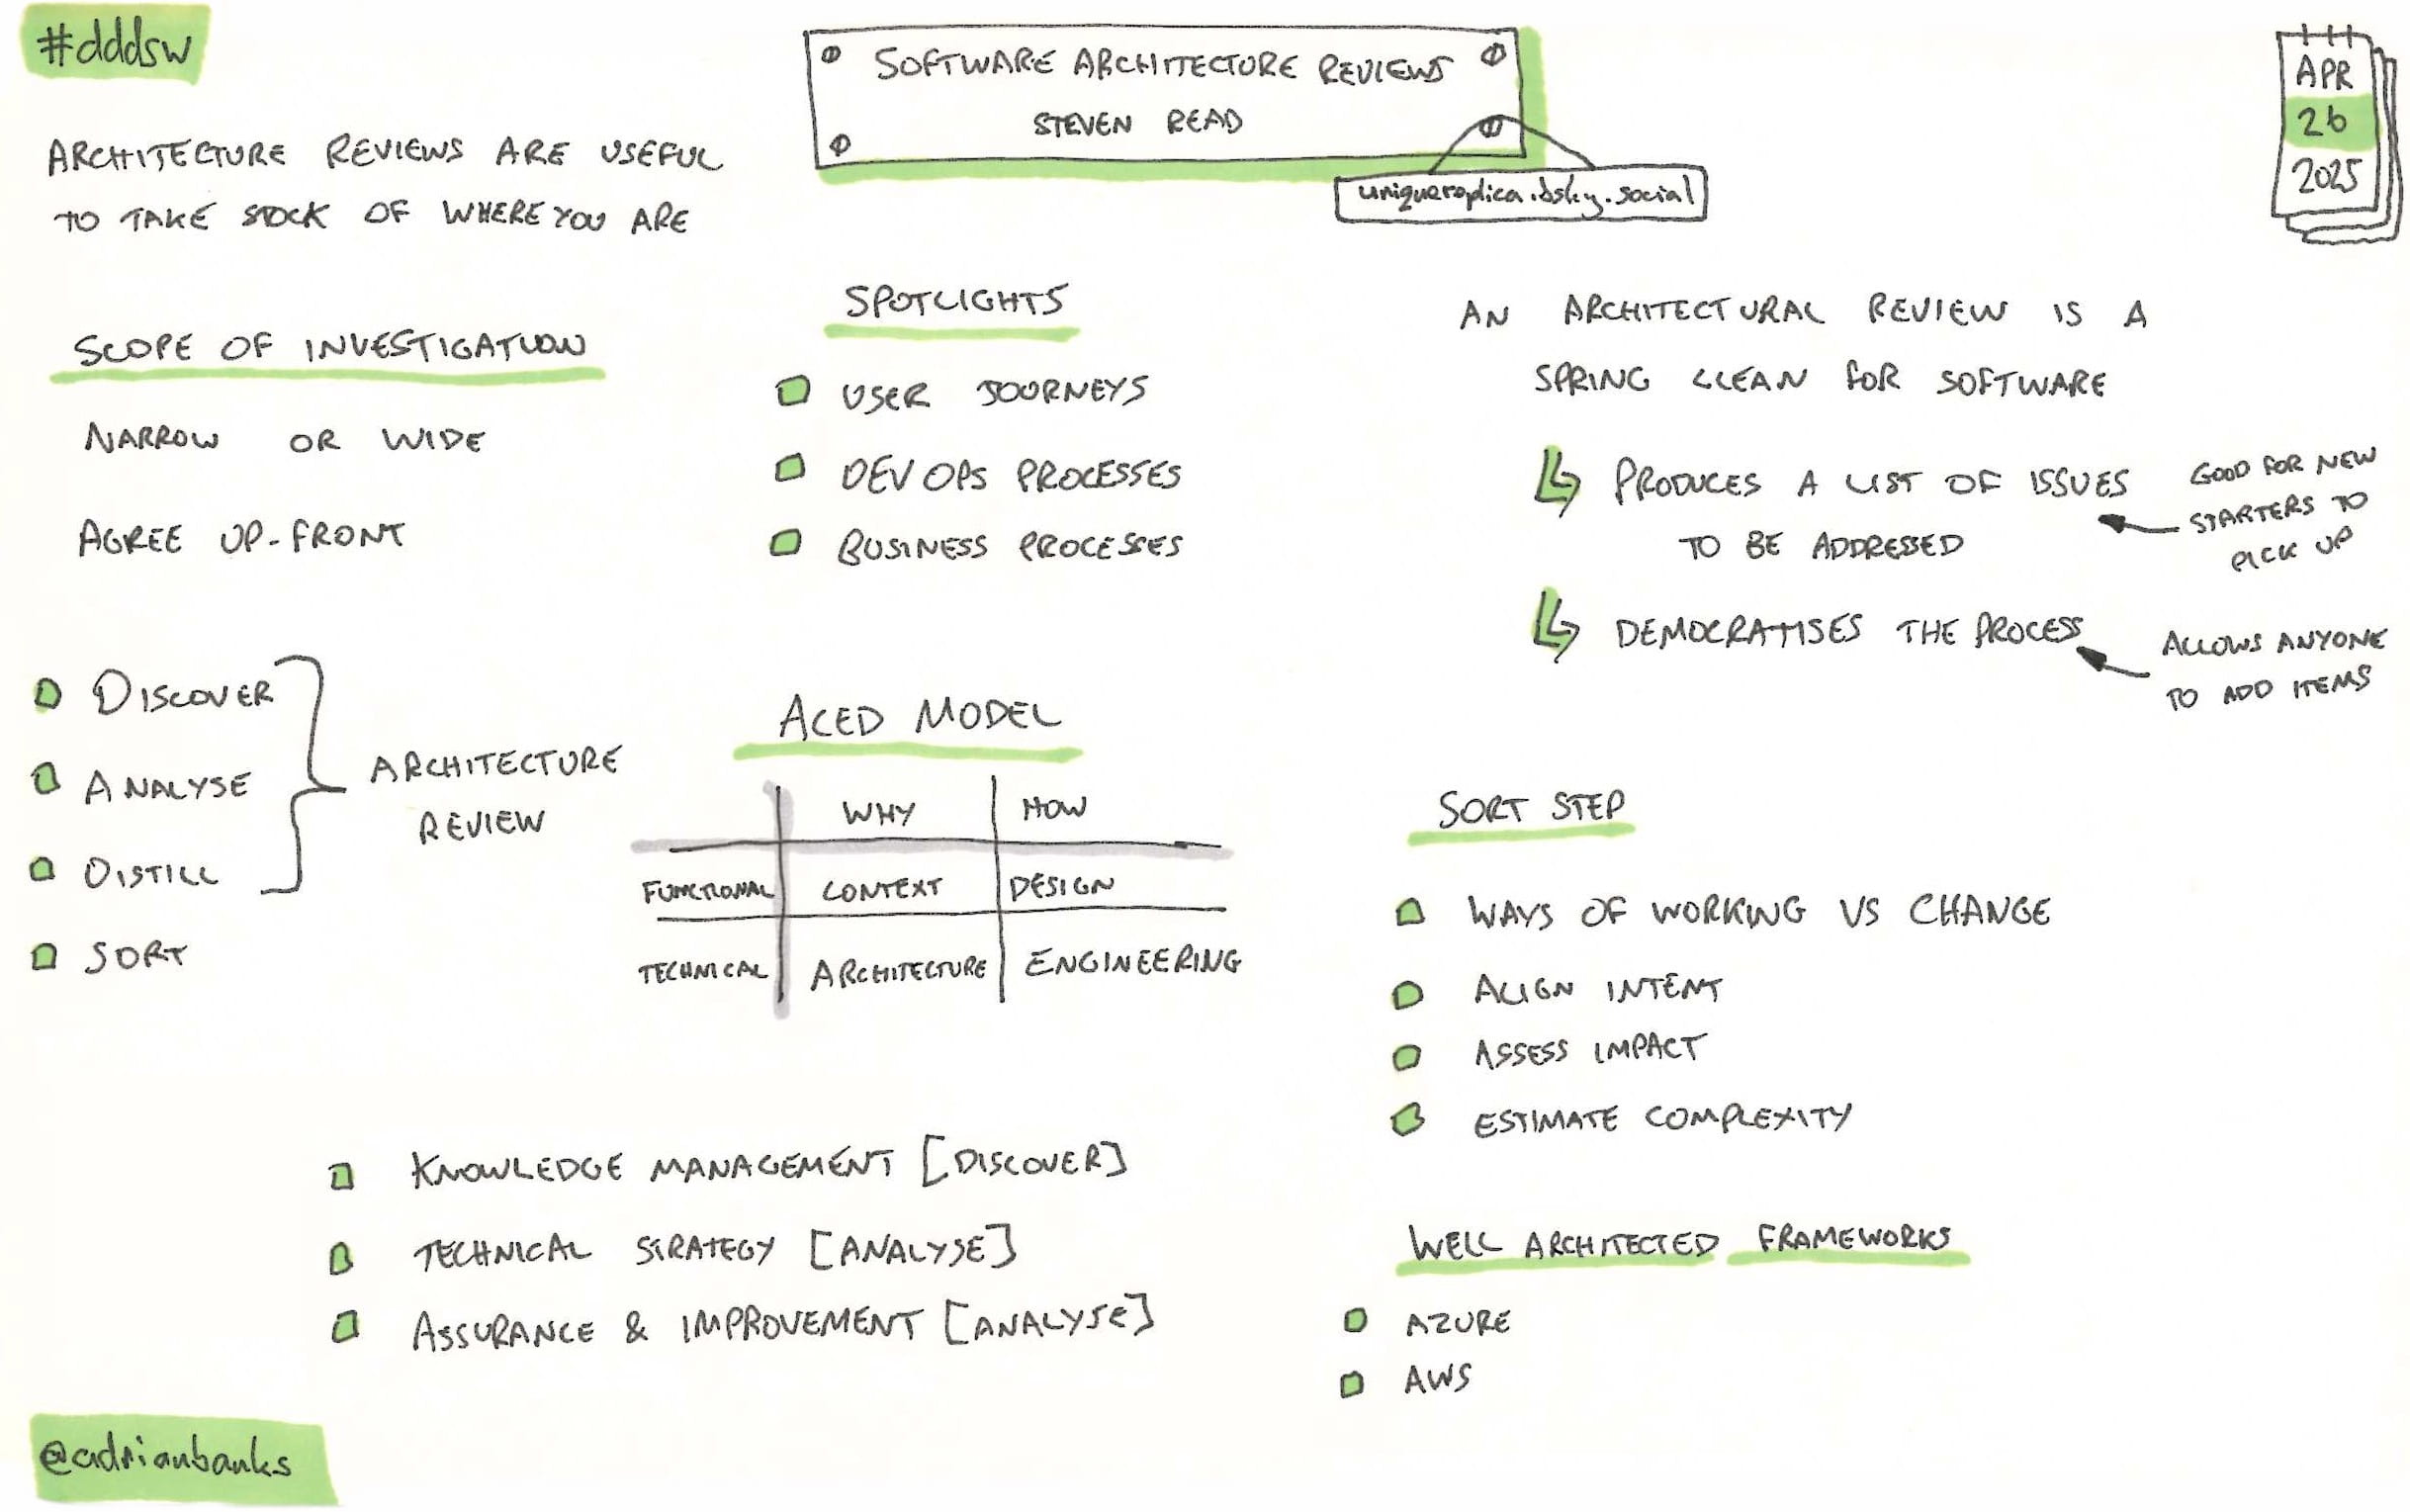 #dddsw
SOFTWARE ARCHITECTURE REVIEWS
STEVEN READ
uniquereplica.bsky.social
APR
26
2025
ARCHITECTURE REVIEWS ARE USEFUL
TO TAKE STOCK OF WHERE YOU ARE
SCOPE OF INVESTIGATION
NARROW OR WIDE
AGREE UP-FRONT
SPOTLIGHTS
USER JOURNEYS
DEV OPS PROCESSES
BUSINESS PROCESSES
AN ARCHITECTURAL REVIEW IS A
SPRING CLEAN FOR SOFTWARE
PRODUCES A LIST OF ISSUES
TO BE ADDRESSED
GOOD FOR NEW
STARTERS TO
PICK UP
DEMOCRATISES THE PROCESS
ALLOWS ANYONE
TO ADD ITEMS
DISCOVER
ANALYSE
DISTILL
SORT
ARCHITECTURE
REVIEW
ACED MODEL
WHY HOW
FUNCTIONAL CONTEXT DESIGN
TECHNICAL ARCHITECTURE ENGINEERING
SORT STEP
WAYS OF WORKING VS CHANGE
ALIGN INTENT
ASSESS IMPACT
ESTIMATE COMPLEXITY
KNOWLEDGE MANAGEMENT [DISCOVER]
TECHNICAL STRATEGY [ANALYSE]
ASSURANCE & IMPROVEMENT [ANALYSE]
WELL ARCHITECTED FRAMEWORKS
AZURE
AWS
@adrianbanks